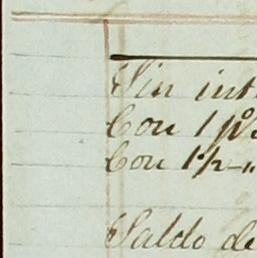 Sin int
Con 1 p%
Con 1½ „
Saldo de